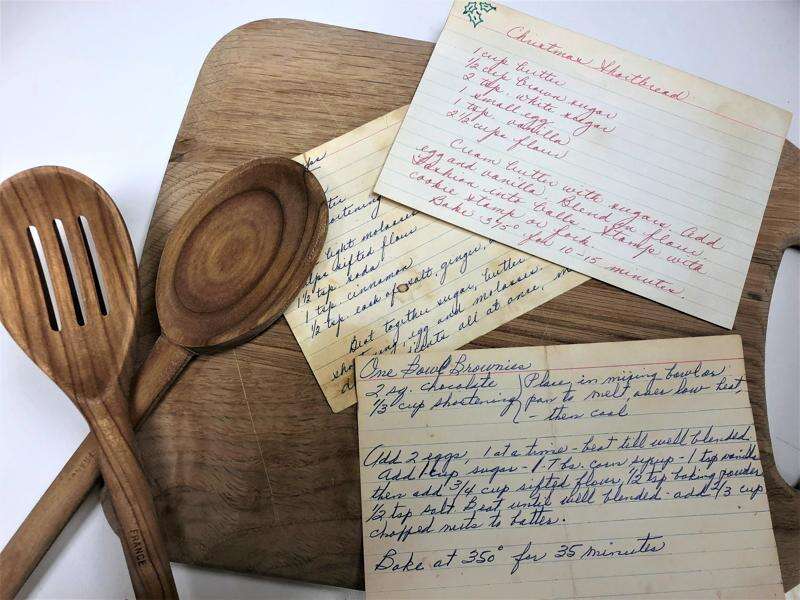 Christmas Shortbread
1 cup butter
1/2 cup brown sugar
2 tsp. white sugar
1 small egg
1 tsp. vanilla
2 1/2 cups flour
Cream butter with sugars. Add
egg and vanilla. Blend in flour.
Fashion into balls. Stamp with
cookie stamp or fork.
Bake 315° for 10-15 minutes.
light molasses
sifted flour
1 1/2 tsp. soda
1 tsp. cinnamon
1/2 tsp. each of salt, ginger,
Beat together sugar, butter
egg and molasses.
all at once,
One Bowl Brownies
2 sq. chocolate
1/3 cup shortening
Place in mixing bowl or
pan to melt over low heat,
- then cool
Add 2 eggs, 1 at a time - beat till well blended
Add 1 cup sugar - 1 Tbs. corn syrup - 1 tsp vanilla
then add 3/4 cup sifted flour, 1/2 tsp baking powder
1/2 tsp salt. Beat until well blended - add 2/3 cup
chopped nuts to batter.
Bake at 350° for 35 minutes
FRANCE